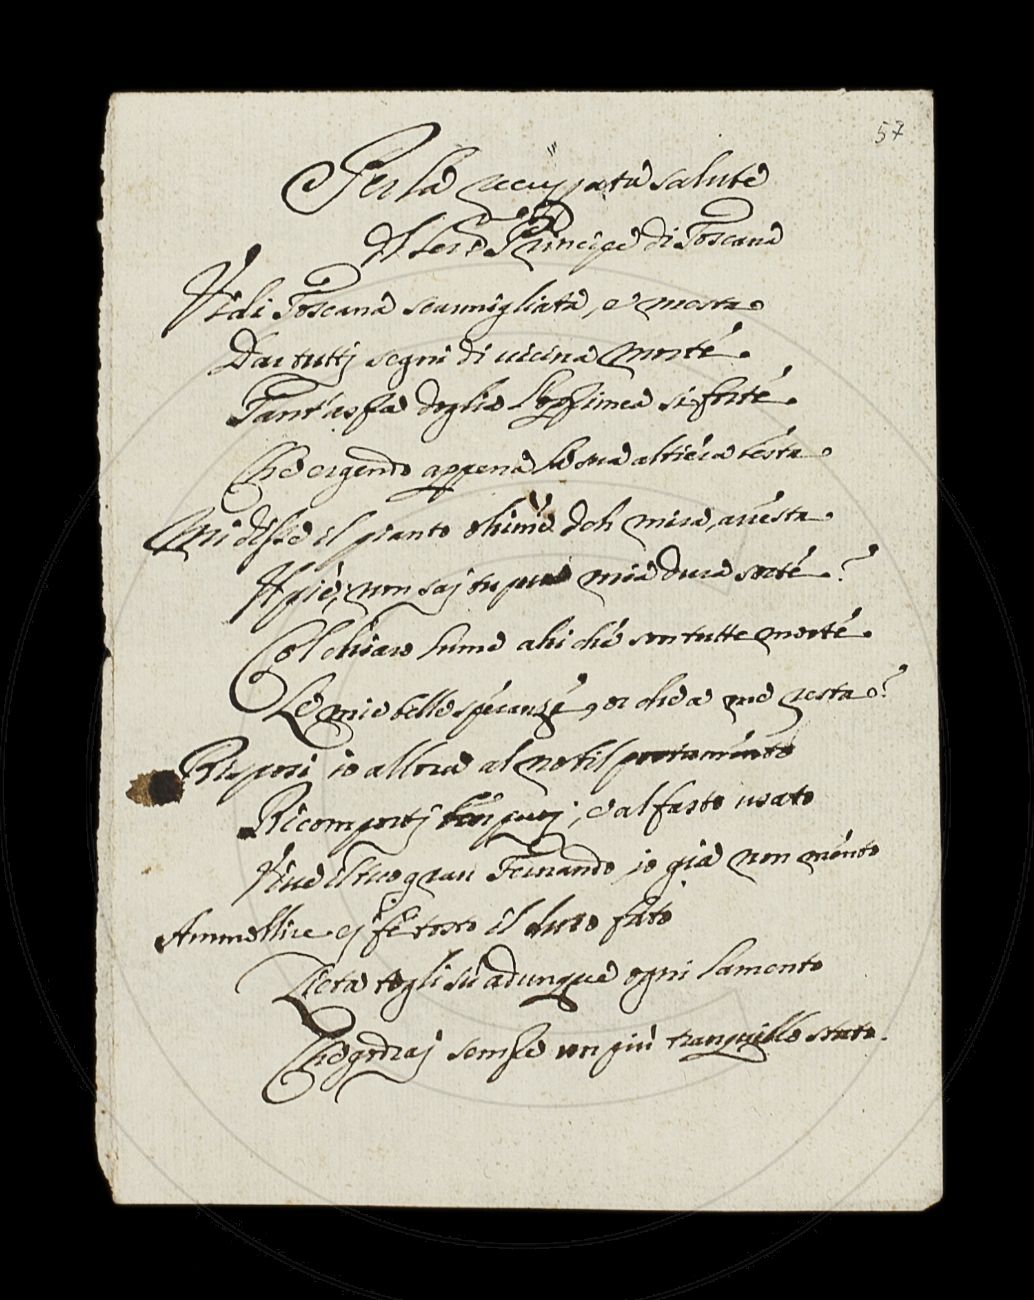 57
Per la recuperata salute
Di Ser.mo Principe di Toscana
Vidi Toscana scarmigliata, e mesta
Dar tuttj segni di uicina morte.
Tant'aspra doglia l'opprimea sì forte.
Che ergendo appena la sua altiera testa.
Mi disse il pianto ohimè deh mira, arresta
Il piè, non saj tu pur mia dura sorte.?
Col chiaro lume ahi chè son tutte morte.
Le mie belle speranze, or che a me resta.?
Risposi io allora al nobil portamento
Ricomportj puoj, e al fasto usato
Viue il tuo gran Fernando io già non mento
Ammollire ej fè tosto il duro fato
Lieta togli sù adunque ogni lamento
Che godraj sempre un più tranquillo stato.